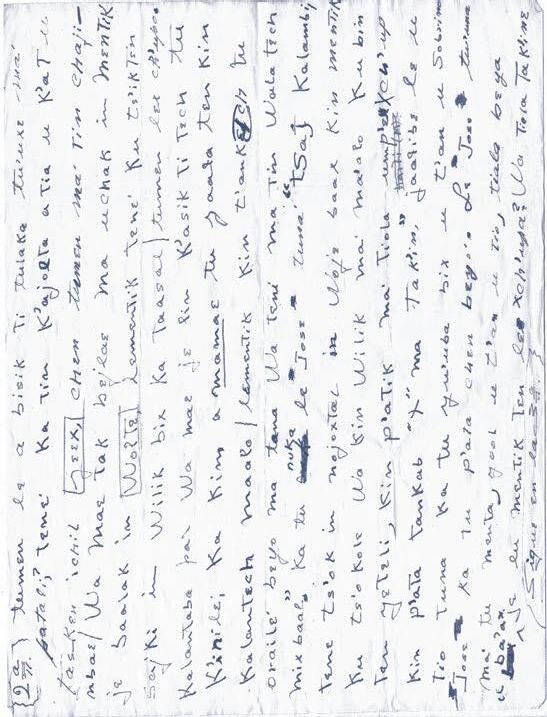 tumen le a bisik Ti tulaka tu'uxe ma'
patali; tene' Ka Tin K'ajolta a Tia u K'aT u
Tasken ichil jeex, chen tumen ma' Tin chaji-
nbae/ Wa mae Tak be'lae ma uchak in menTik
je baalak in Wolte, lementik Tene' Ku
in Wilik bix Ka Taasal/ tumen lee ch'upo
Kalantaba pai Wa mae je lin K'asik Ti Tech tu
K'inile; Ka Kim a mamae tu jaala ten Kin
Kalantech maalo/ lementik Kin t'ankech tu
oraile beyo ma tana Wa Tene ma Tin WalaTech
mixbaal, Ka tu nuka le Jose tuna' "TSaj
Tene ts'ok in nojoxtal in baax Kin menTik
Ku tsokole Wa Kin Wilik ma' ma'alo Ku bin
Ten jeteli, Kin p'atik ma' Tiola ump'el xch'up
Kin p'ata Tankab "y" ma Tak'in," le u
Tio tuna Ka tu yu'uba bix u t'an u Sobrin
Jose Ka tu p'ata chen beyo Le Jose tu'une
ma' tu menta, yool u t'an u tio, tiola beya
u ba'ax je lu mentik Ten le xch'upa? Wa Tiola Takine
(Sigue en la 3ª.)